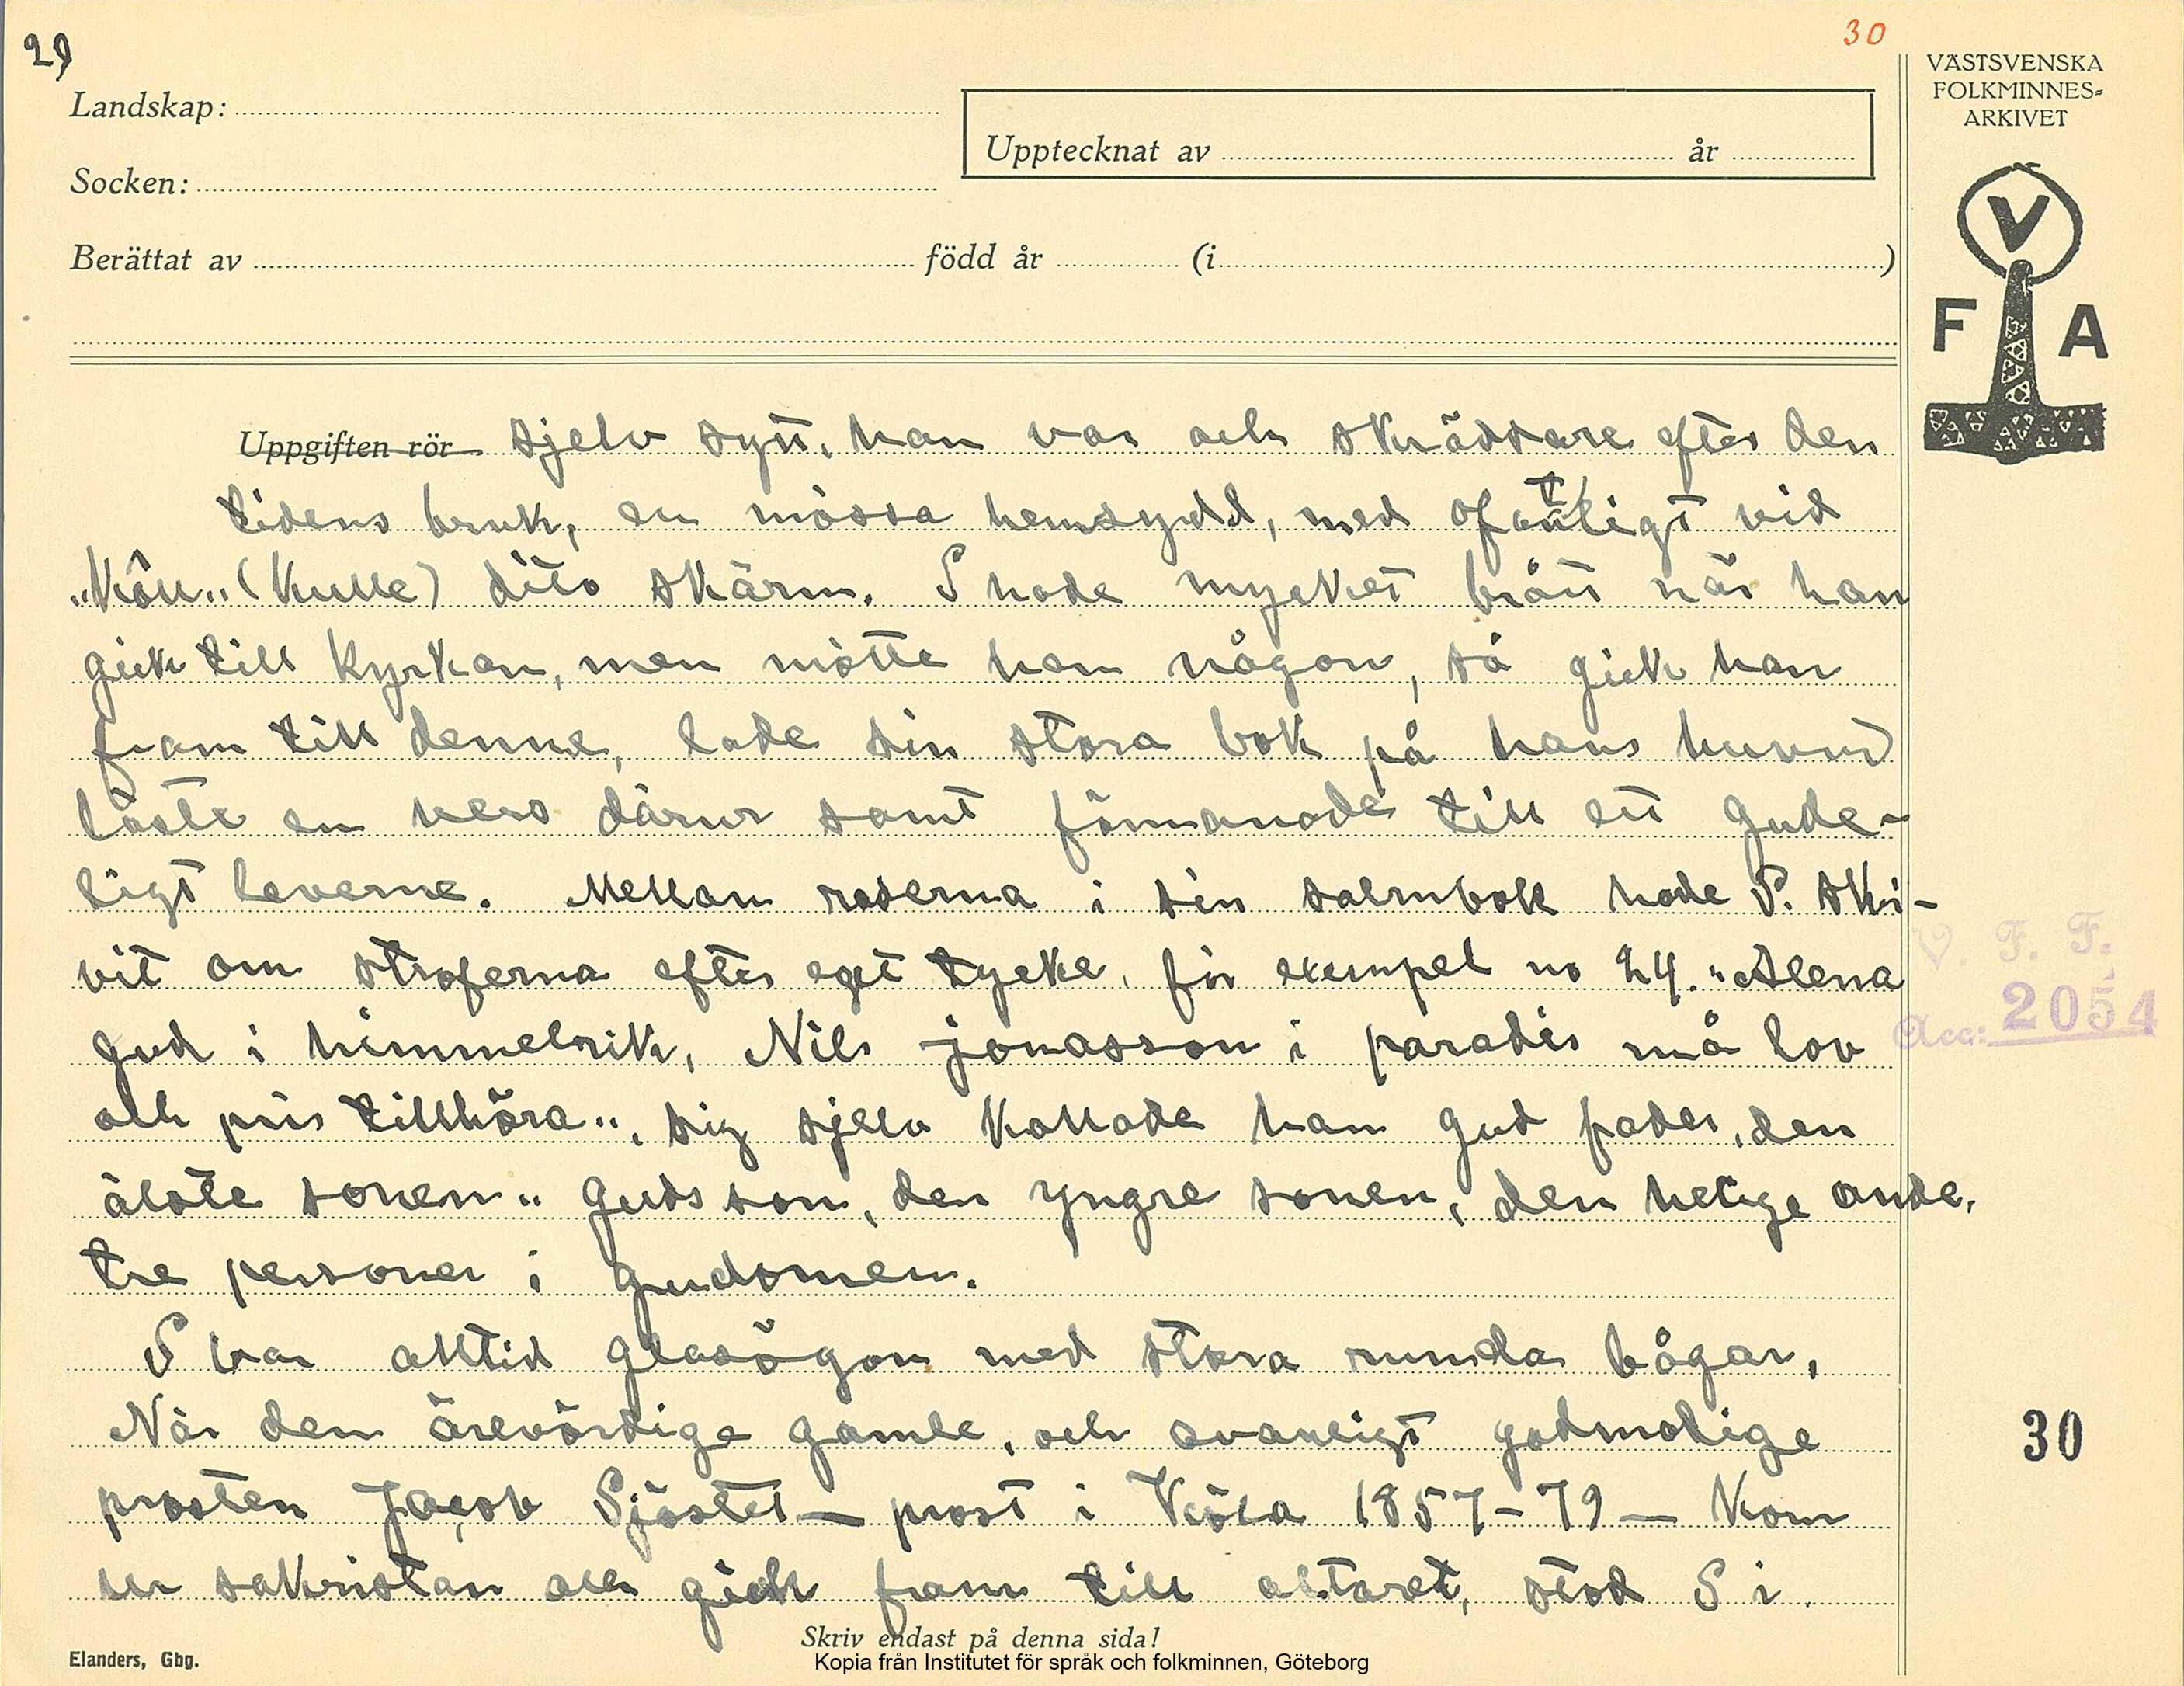 29
30
VÄSTSVENSKA
FOLKMINNES-
ARKIVET
Landskap:
Upptecknat av år
Socken:
Berättat av född år (i )
V
F A
Uppgiften rör sjelv sytt, han var och skräddare efter den
tidens bruk, en mössa hemsydd, med ofantligt vid
"Kôll" (Kulle) dito skärm. S hade mycket brått når han
gick till Kyrkan, men mötte han någon, så gick han
fram till denne, lade sin stora bok på hans huvud
läste en vers därur samt förmanade till ett gude-
ligt leverne. Mellan raderna i sin salmbok hade S. skri-
vit om stroferna efter eget tycke, för exempel no 24. "Alena
gud i himmelrik, Nils jonasson i paradis må lov
och pris tillhöra", sig sjelv Kallade han gud fader, den
älste sonen" Guds son, den yngre sonen, den helige ande,
tre personer i gudomen.
S bar alltid glasögon med stora runda bågar,
När den ärevördige gamle, och ovanligt godmodige
prosten Jacob Sjöstet – prost i Köla 1857-79 – Kom
ur sakristan och gick fram till altaret, stod S i
V. F. F.
Acc: 2054
30
Skriv endast på denna sida!
Elanders, Gbg.
Kopia från Institutet för språk och folkminnen, Göteborg